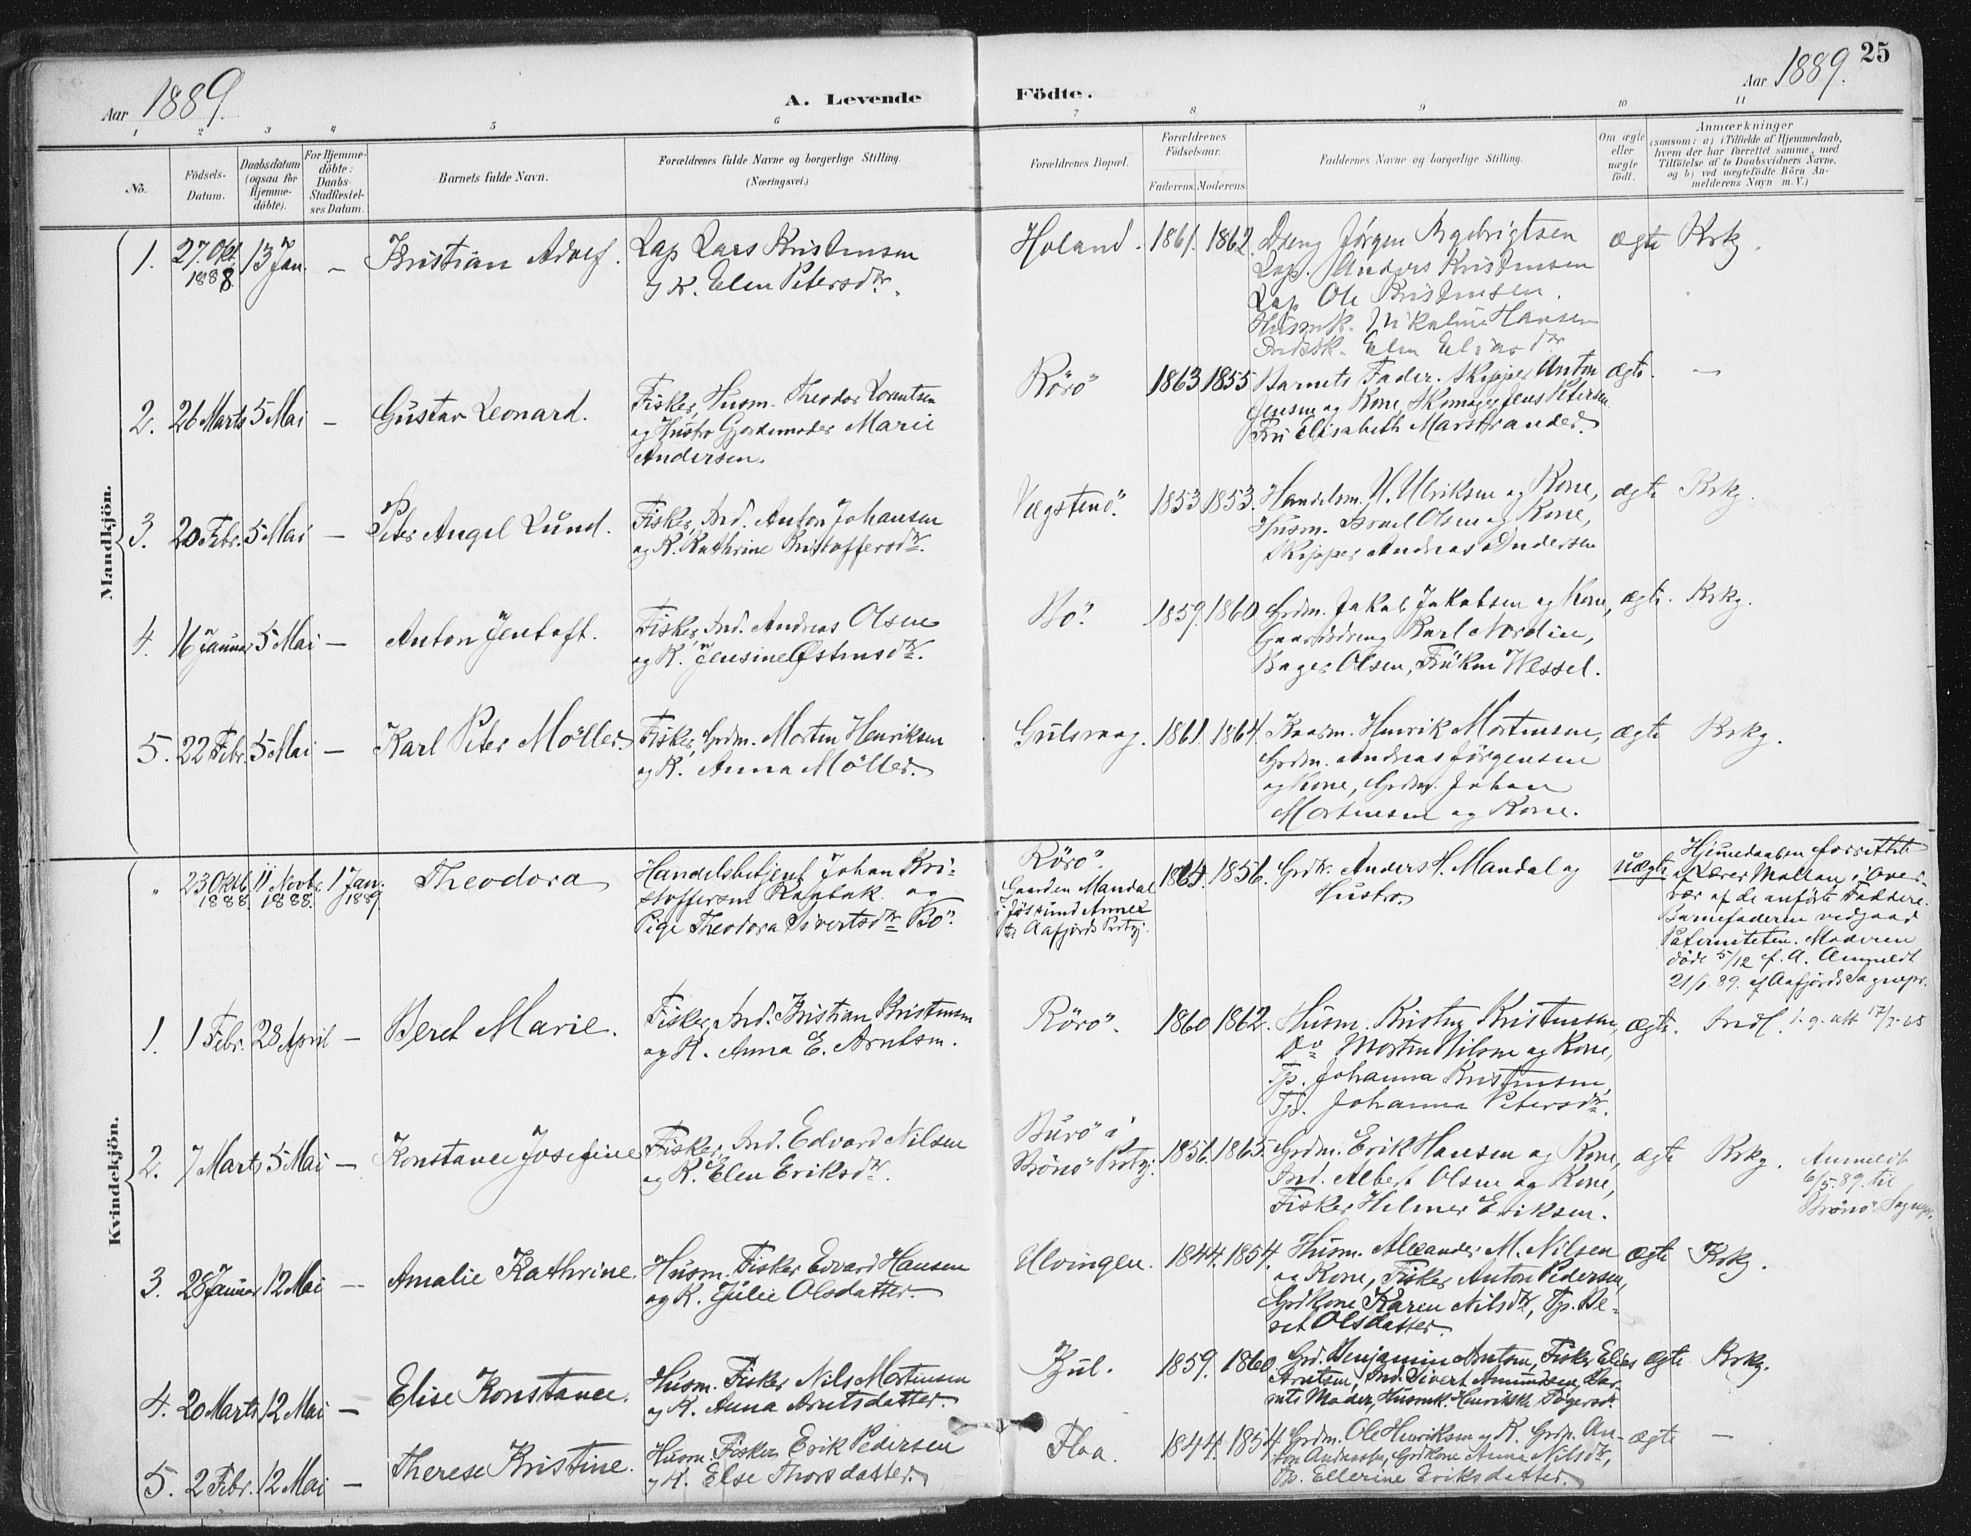 Aar 1889.
A. Levende
Födte.
Aar 1889.
25
1 2 3 4 5 6 7 8 9 10 11
No.
Födsels-
Datum.
Daabsdatum
(ogsaa for
Hjemme-
döbte).
For Hjemme-
döbte:
Daabs-
Stadfæstel-
ses Datum.
Barnets fulde Navn.
Forældrenes fulde Navne og borgerlige Stilling.
(Næringsvei.)
Forældrenes Bopæl.
Forældrenes
Födselsaar.
Faderens. Moderens.
Faddernes Navne og borgerlige Stilling.
Om ægte
eller
uægte
födt.
Anmærkninger
(saasom: a) i Tilfælde af Hjemmedaab,
hvem der har forrettet samme, med
Tilföielse af to Daabsvidners Navne,
og b) ved uægtefödte Börn An-
melderens Navn m. V.)
Mandkjön.
1. 27. Okt. 1888 13 Jan. – Kristian Adolf.
Lap Lars Kristensen
og K. Elen Petersdtr.
Holand. 1861. 1862.
Dreng Jörgen Ingebrigtsen
Lap. Anders Kristensen
Lap Ole Kristensen.
Husmk. Nikoline Hansen
Indsk. Elen Eliasdtr
ægte Krkg.
2. 26 Marts 5 Mai – Gustav Leonard.
Fisker, Husm. Theodor Lorntsen
og Hustro Gjordemoder Marie
Andersen.
Rörö 1863 1855
Barnets Fader. Skipper Anton
Jensen og Kone, Skomager Jens Petersen
Fru Elisabeth Marstrander.
ægte. –
3. 20 Febr. 5 Mai – Peter Angel Lund.
Fisker, Ind. Anton Johansen
og K. Kathrine Kristoffersdtr.
Vegstenö. 1853 1853.
Handelsm. H. Ulriksen og Kone,
Husm. Israel Olsen og Kone,
Skipper Andreas Andersen
ægte Krkg.
4. 16 Januar 5 Mai – Anton Jentoft.
Fisker, Ind. Andreas Olsen
og K. Jensine Östensdtr.
Bö. 1859. 1860
Grdm. Jakob Jakobsen og Kone,
Gaardsdreng Karl Nordlie,
Bager Olsen, Fröken Wessel.
ægte. Krkg.
5. 22 Febr. 5 Mai – Karl Peter Möller
Fisker, Grdm. Morten Henriksen
og K. Anna Möller.
Gulsvaag. 1861. 1864.
Kaarm. Henrik Mortensen,
Grdm. Andreas Jörgensen
og Kone, Grdm. Johan
Mortensen og Kone.
ægte Krkg.
Kvindekjön.
" 23 Oktb. 1888. 11 Novbr. 1888. 1 Jan. 1889 Theodora
Handelsbetjent Johan Kri-
stoffersen og
Pige Theodora Sivertsdtr Bö.
Rörö.
Gaarden Mandal
i Jössund Annex
til Aafjords Prstgj.
1864. 1856.
Grdbr. Anders H. Mandal og
Hustro.
uægte
Hjemedaaben forrettet
af Lærer Mollan i Over-
vær af de anförte Faddere.
Barnefaderen vedgaar
Paterniteten. Moderen
döde 5/12 f. A. Anmeldt
21/1 89. af Aafjords Sognepr.
1. 1 Febr. 28 April – Beret Marie.
Fisker, Ind. Kristian Kristensen
og K. Anna E. Arntsen.
Rörö. 1860 1862.
Husm. Kristen Kristensen,
Do Morten Nilsen og Kone,
Tp. Johanna Kristensen,
Tp. Johanna Petersdtr.
ægte. Indl.
2. 7 Marts 5 Mai – Konstance Josefine
Fisker, Ind. Edvard Nilsen
og K. Elen Eriksdtr.
Burö i
Brönö Prstgj. 1856. 1865.
Grdm. Erik Hansen og Kone,
Ind. Albert Olsen og Kone,
Fisker Helmer Eriksen.
ægte Krkg.
Anmeldt
6/5. 89. til
Brönö Sognepr.
3. 28 Januar 12 Mai – Amalie Kathrine.
Husm. Fisker Edvard Hansen
og K. Julie Olsdatter.
Alvingen. 1844. 1854.
Husm. Alexander M. Nilsen
og Kone, Fisker Anton Pedersen,
Grdkone Karen Nilsdtr, Tp. Be-
ret Olsdatter.
ægte Krkg.
4. 20 Marts 12 Mai – Elise Konstance.
Husm. Fisker Nils Mortensen
og K. Anna Arntsdatter.
Kjul. 1859. 1860
Grd. Benjamin Arntsen, Fisker Elias
Arntsen, Ind. Sivert Amundsen, Bar-
nets Moder, Husmk. Henrikke
ægte Krkg.
5. 2 Febr. 12 Mai – Therese Kristine.
Husm. Fisker Erik Pedersen
og K. Else Thorsdatter
Floa. 1844. 1854
Grdm. Ole Henriksen og K. Grdm. An-
ton Andersen, Grdkone Anna Nilsdtr,
Tp. Ellerine Eriksdatter.
ægte –